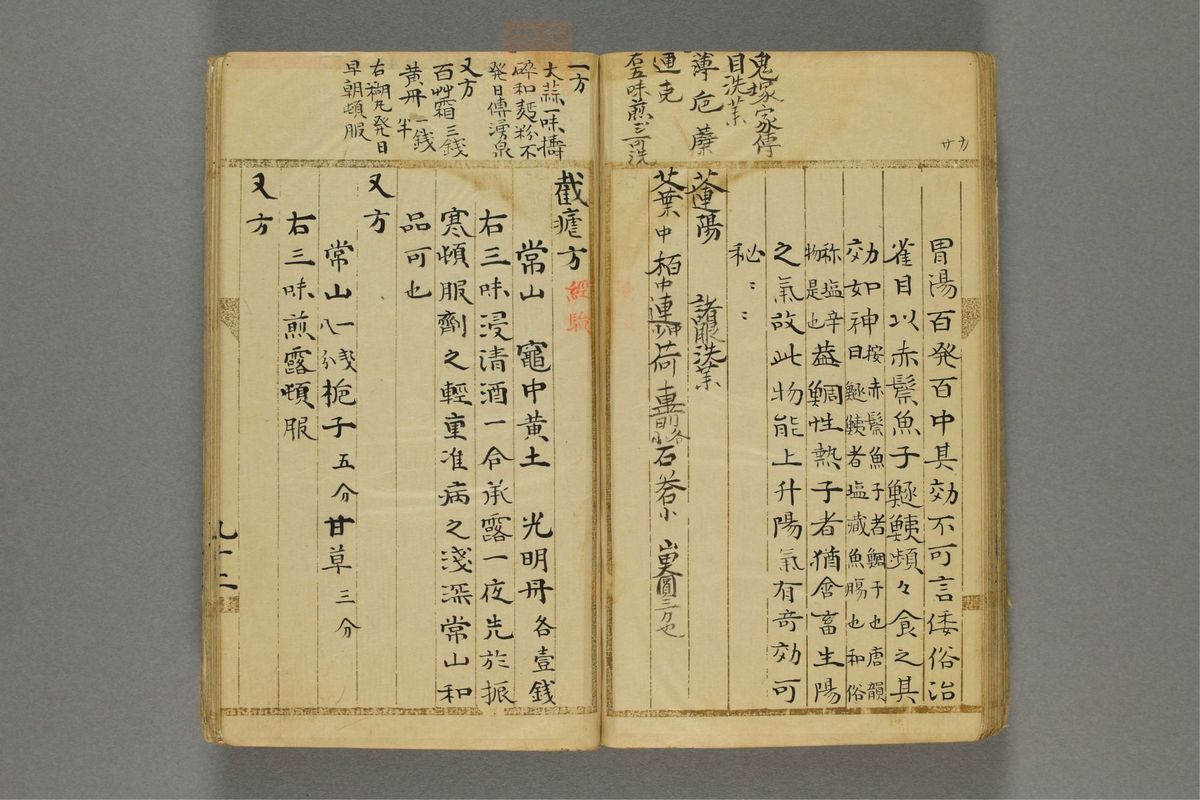 鬼塚家傳
目洗薬
薄危蘼
連克
右五味煎ジ可洗
胃湯百発百中其効不可言倭俗治
雀目以赤鬃魚子鱁鮧頻々食之其
効如神日按赤鬃魚子者鯛子也唐韻
鱁鮧者塩藏魚腸也和俗
称塩辛
物是也盖鯛性熱子者猶含畜生陽
之氣故此物能上升陽氣有奇効可
秘〻〻
蓮陽 諸眼洗薬
艾葉中 栢中 連 荷 石菖小
一方
大蒜一味擣
碎和麺粉不
発日傅湧泉
又方
百艸霜三錢
黄丹一錢半
右糊丸発日
早朝頓服
截瘧方 經驗
常山 竈中黄土 光明丹各壹錢
右三味浸清酒一合承露一夜先於振
寒頓服劑之輕重准病之淺深常山和
品可也
又方
常山一戔八分 梔子五分 甘草三分
右三味煎露頓服
又方
九十二